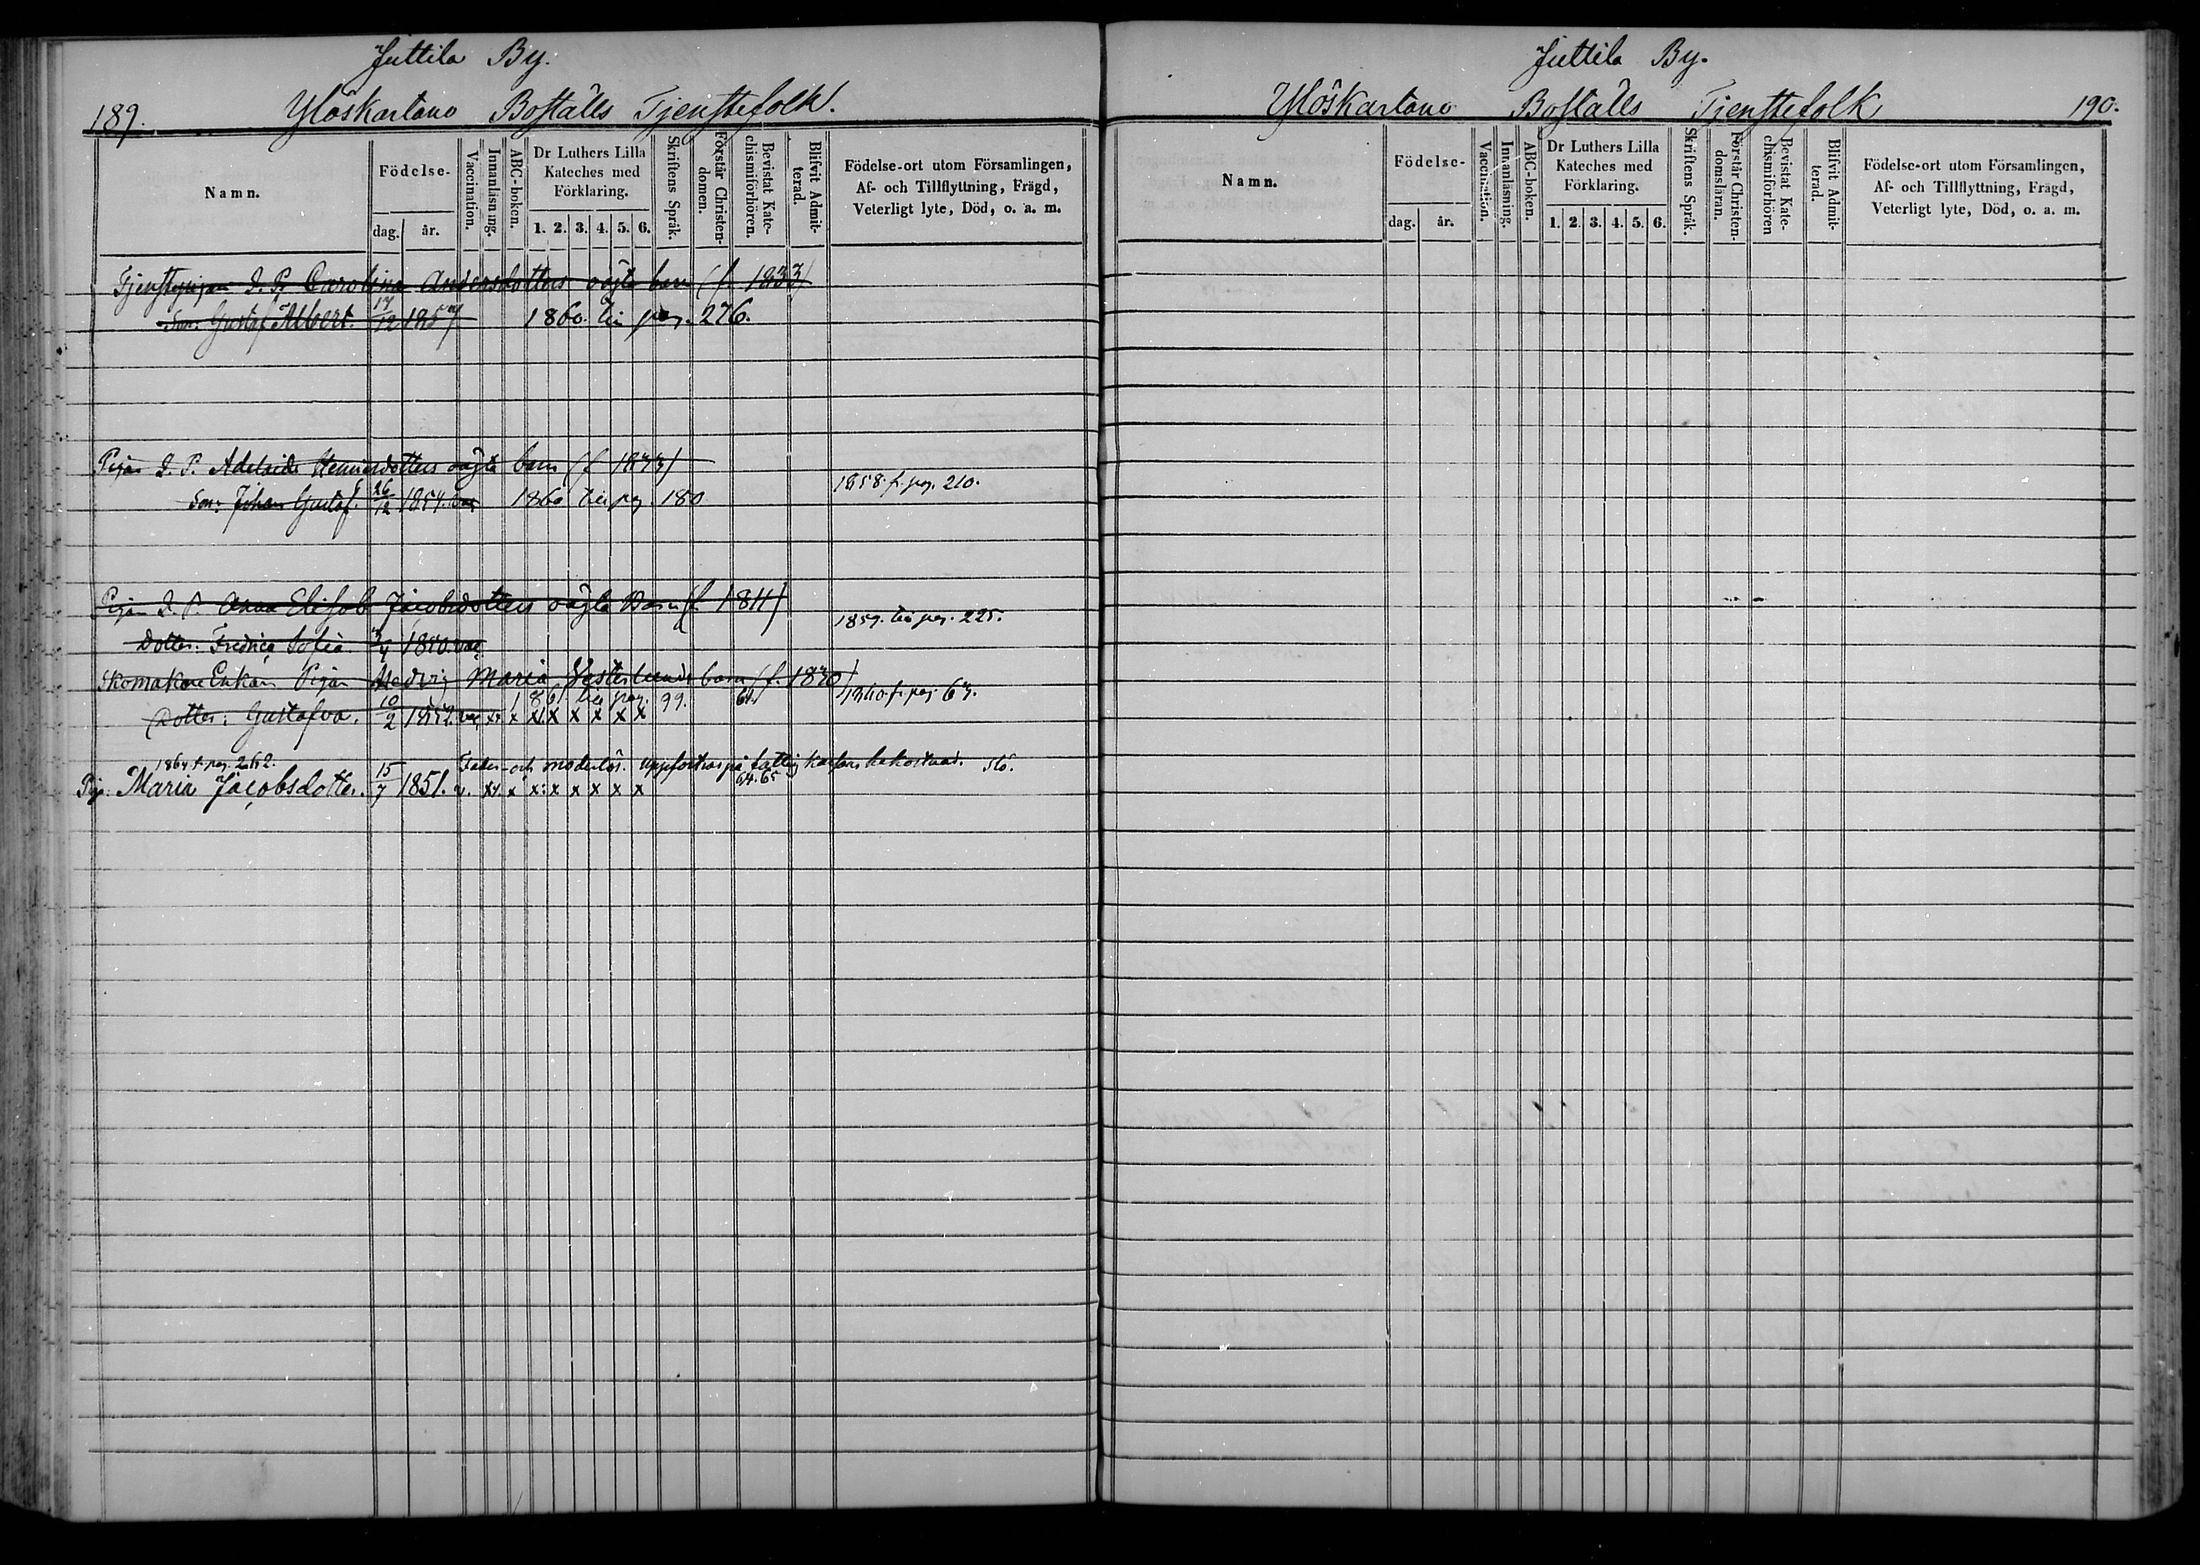 Juttila By.
189. Ylöskartano Boställs Tjenstefolk.
Namn.
Födelse-
dag. år.
Vaccination.
Innanläsning.
ABC-boken.
Dr Luthers Lilla Kateches med Förklaring.
1. 2. 3. 4. 5. 6.
Skriftens Språk.
Förstår Christen-domen.
Bevistat Kate-chismiförhören.
Blifvit Admit-terad.
Födelse-ort utom Församlingen,
Af- och Tillflyttning, Frägd,
Veterligt lyte, Död, o. a. m.
Tjenstepigan I. P. Carolina Andersdotters oägta barn (f. 1833)
Son: Gustaf Albert. 17/12 1857 1860. till pag. 276.
Pigan I. P. Adelaide Henricsdotters oägta barn (f 1833)
1858. fr. pag. 210.
Son: Johan Gustaf. 26/12 1854. vac 1860 till pag. 180
Pigan I. P. Anna Elisab. Jacobsdotters oägta Barn (f. 1811)
1859. till pag. 225.
Dotter: Fredrica Sofia. 3/4 1850. vac.
Skomakare Enkan Pigan Hedvig Maria Vesterlunds barn (f. 1830)
1861. till pag. 99. 61. 1860 fr. pag. 63.
Dotter: Gustafva. 10/2 1852. vac x. x x x x x x x
1864 fr. pag. 262. Fader- och moderlös. uppfostras på fattig kassans bekostnad.
Pig. Maria Jacobsdotter. 15/7 1851. v. xx. x x: x x x x x 64. 65
Juttila By.
Ylöskartano Boställs Tjenstefolk 190.
Namn.
Födelse-
dag. år.
Vaccination.
Innanläsning.
ABC-boken.
Dr Luthers Lilla Kateches med Förklaring.
1. 2. 3. 4. 5. 6.
Skriftens Språk.
Förstår Christen-domsläran.
Bevistat Kate-chismiförhören
Blifvit Admit-terad.
Födelse-ort utom Församlingen,
Af- och Tillflyttning, Frägd,
Veterligt lyte, Död, o. a. m.